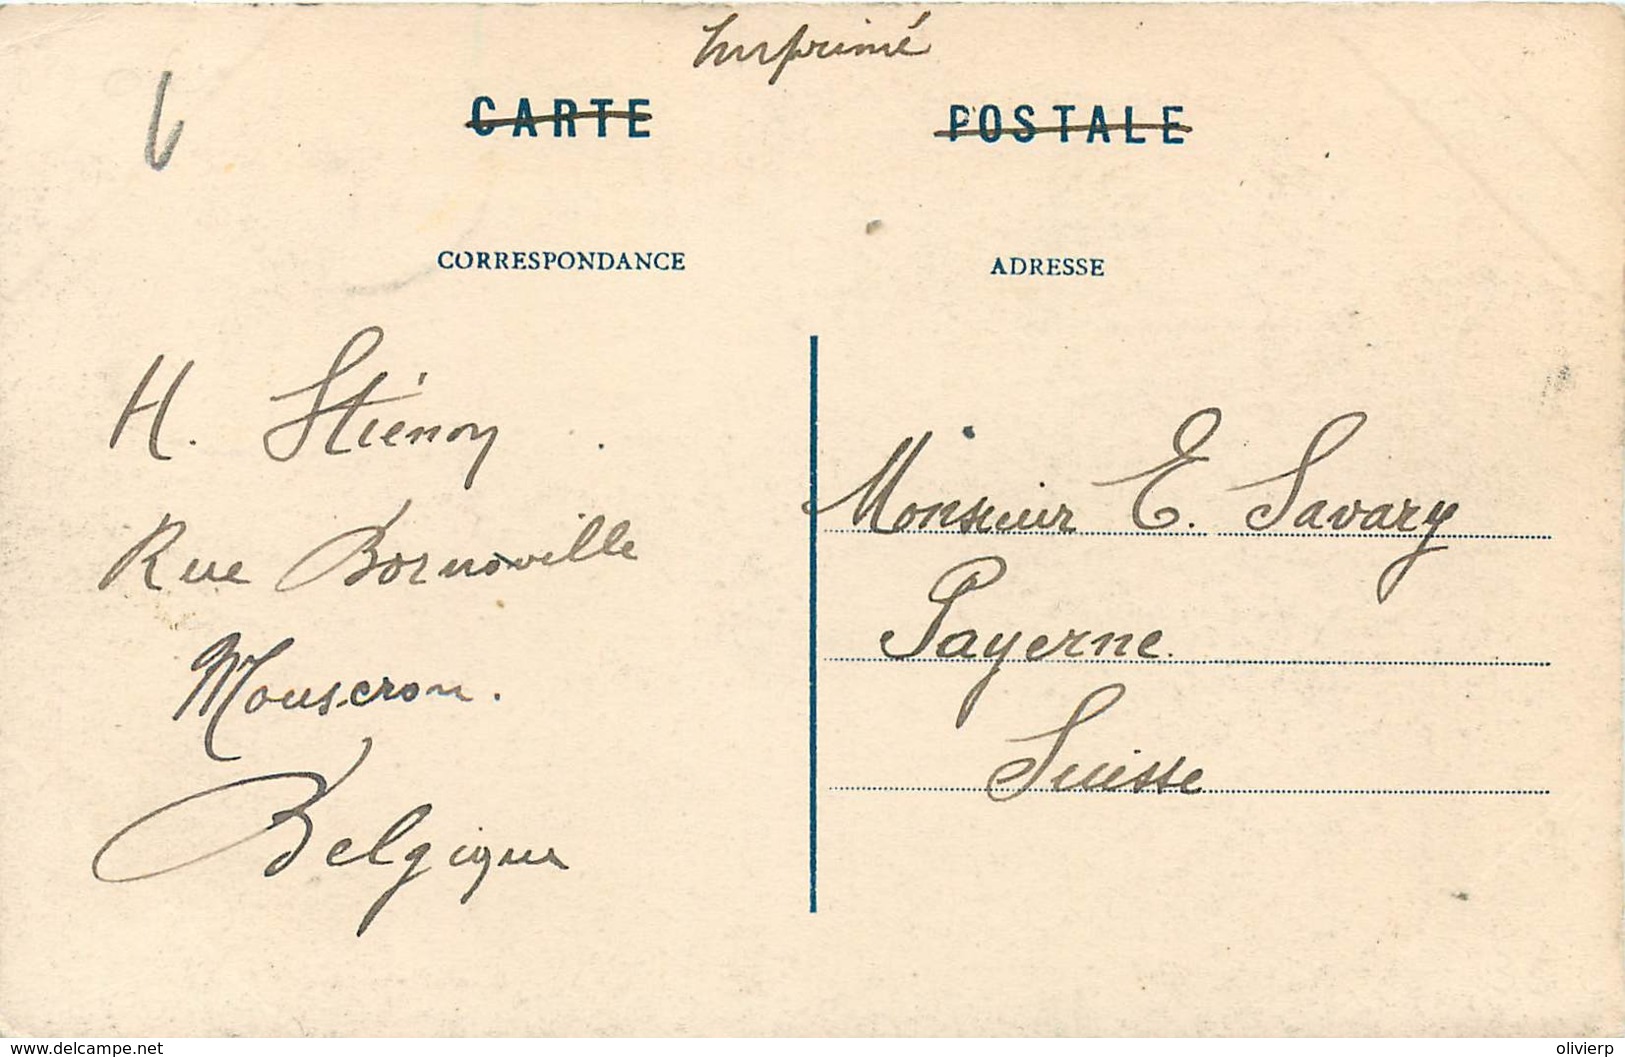 Imprimé
CARTE POSTALE
CORRESPONDANCE
ADRESSE
H. Stiénon
Rue Bornoville
Mouscron.
Belgique
Monsieur E. Savary
Payerne.
Suisse
www.delcampe.net
olivierp